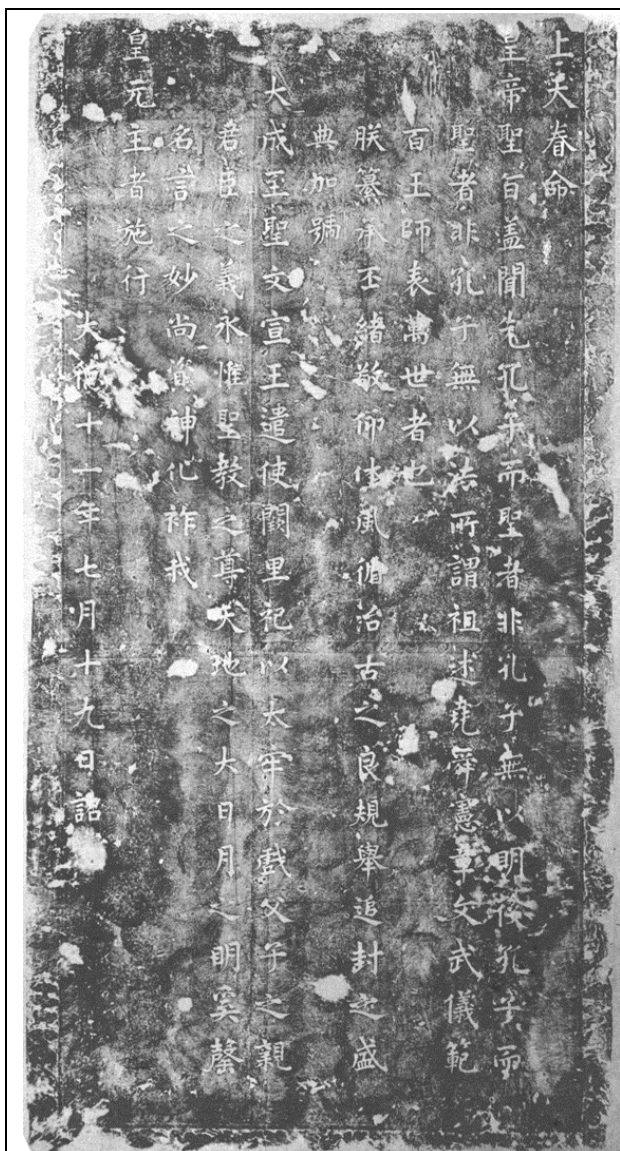 上天眷命
皇帝聖旨盖聞先孔子而聖者非孔子無以明後孔子而
聖者非孔子無以法所謂祖述堯舜憲章文武儀範
百王師表萬世者也
朕纂承丕緒敬仰休風循治古之良規舉追封之盛
典加號
大成至聖文宣王遣使闕里祀以太牢於戲父子之親
君臣之義永惟聖教之尊天地之大日月之明奚罄
名言之妙尚資神化祚我
皇元主者施行
大德十一年七月十九日詔